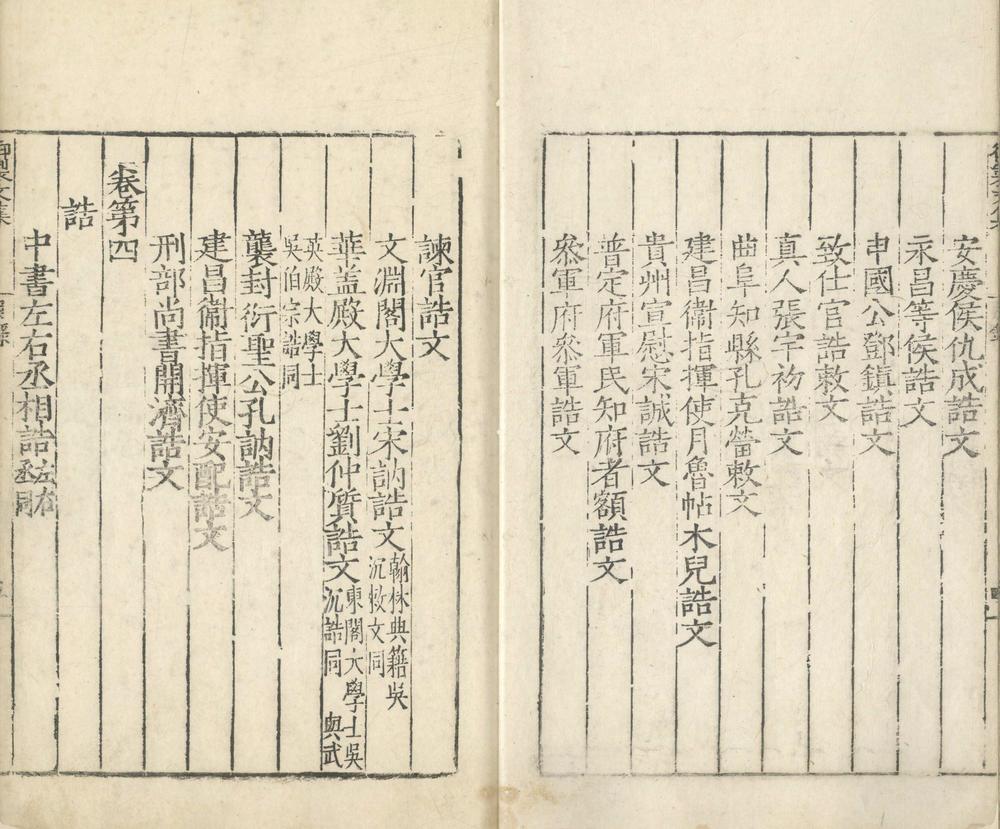 安慶侯仇成誥文
永昌等侯誥文
申國公鄧鎮誥文
致仕官誥敕文
真人張宇初誥文
曲阜知縣孔克㽦敕文
建昌衞指揮使月魯帖木兒誥文
貴州宣慰宋誠誥文
普定府軍民知府者額誥文
叅軍府叅軍誥文
諫官誥文
文淵閣大學士宋訥誥文翰林典籍吳
沉敕文同
華盖殿大學士劉仲質誥文東閣大學士吳
沉誥同 與武
英殿大學士
吳伯宗誥同
襲封衍聖公孔訥誥文
建昌衞指揮使安配誥文
刑部尚書開濟誥文
卷第四
誥
中書左右丞相誥左右
丞同
御製文集